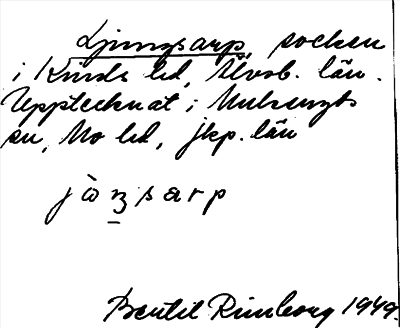 Ljungsarp, socken
i Kinds hd, Älvsb. län.
Upptecknat i Mulseryds
sn, Mo hd, jkp. län
jòŋsarp
Bertil Rimborg 1949.